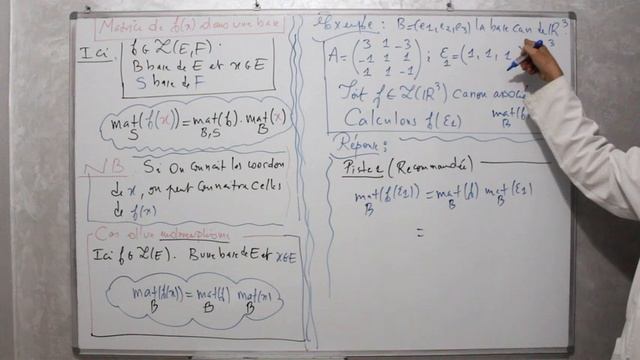 Matrice de f(x) dans une base
Ici : f ∈ L(E,F).
B base de E et x ∈ E
S base de F
mat(f(x)) = mat(f) . mat(x)
S B,S B
NB Si On connait les coordon
de x, on peut connaitre celles
de f(x)
Cas d'un endomorphisme
Ici f ∈ L(E). B une base de E et x ∈ E
mat(f(x)) = mat(f) mat(x)
B B B
Exemple : B=(e1,e2,e3) la base can de ℝ³
A = ( 3 1 -3 ; ε1 = (1, 1, 1
-1 1 1
1 1 -1 )
f ∈ L(ℝ³) canon
Calculons f(ε1) mat(
B
Réponse :
(Recommandée)
mat(f(ε1)) = mat(f) mat(ε1)
B B B
=